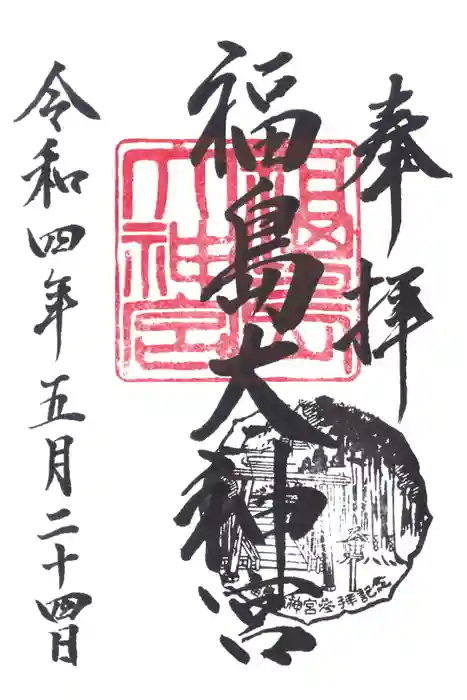 奉拝
福島大神宮
福島大神宮
令和四年五月二十四日
神宮参拝記念